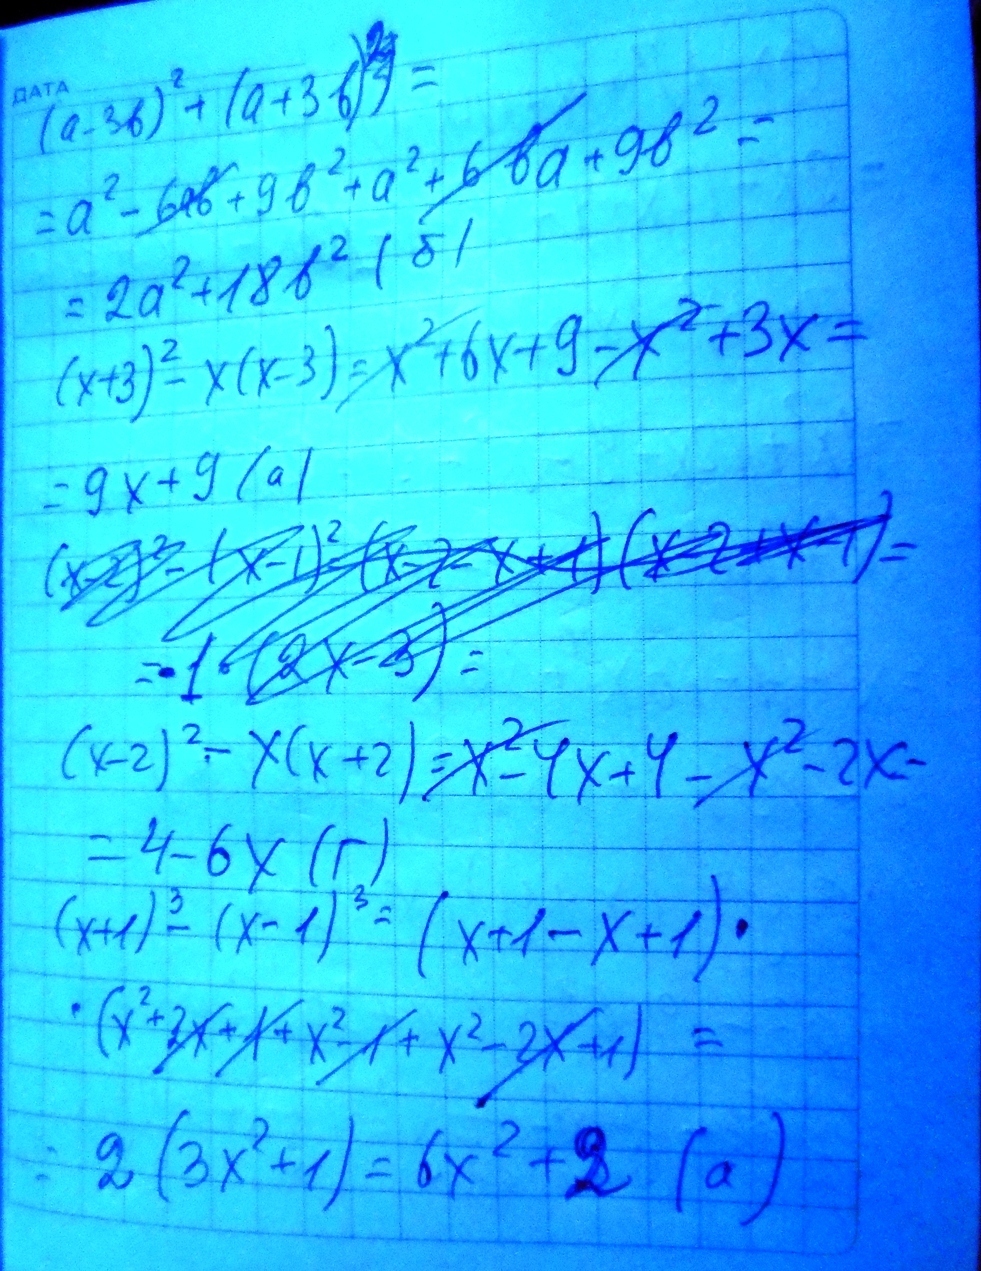 ДАТА
(a-3b)² + (a+3b)² =
= a² - 6ab + 9b² + a² + 6ba + 9b² =
= 2a² + 18b² (б)
(x+3)² - x(x-3) = x² + 6x + 9 - x² + 3x =
= 9x + 9 (а)
(x-2)² - (x-1)² = (x-2-x+1)(x-2+x-1) =
= -1·(2x-3) =
(x-2)² - x(x+2) = x² - 4x + 4 - x² - 2x -
= 4 - 6x (г)
(x+1)³ - (x-1)³ = (x+1-x+1)·
·(x² + 2x + 1 + x² - 1 + x² - 2x + 1) =
= 2(3x² + 1) = 6x² + 2 (а)